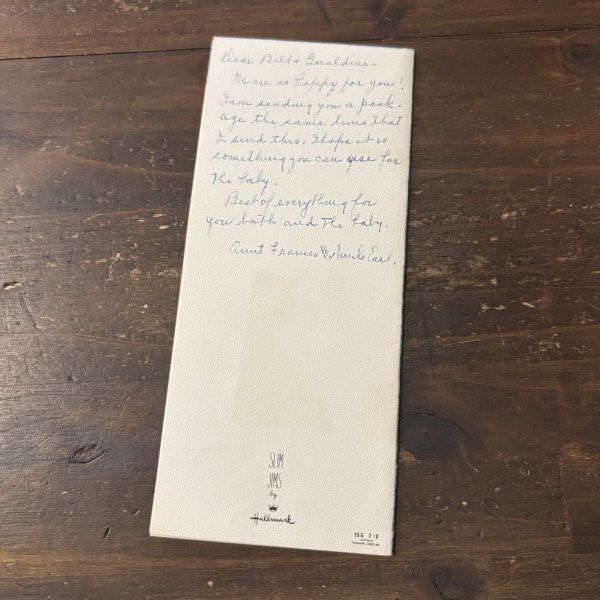 Dear Bill & Geraldine -
We are so happy for you!
I am sending you a pack-
age the same time that
I send this. I hope it is
something you can use for
the baby.
Best of everything for
you both and the baby.
Aunt Frances & Uncle Earl.
SLIM
JIMS
by
Hallmark
15G 7-2